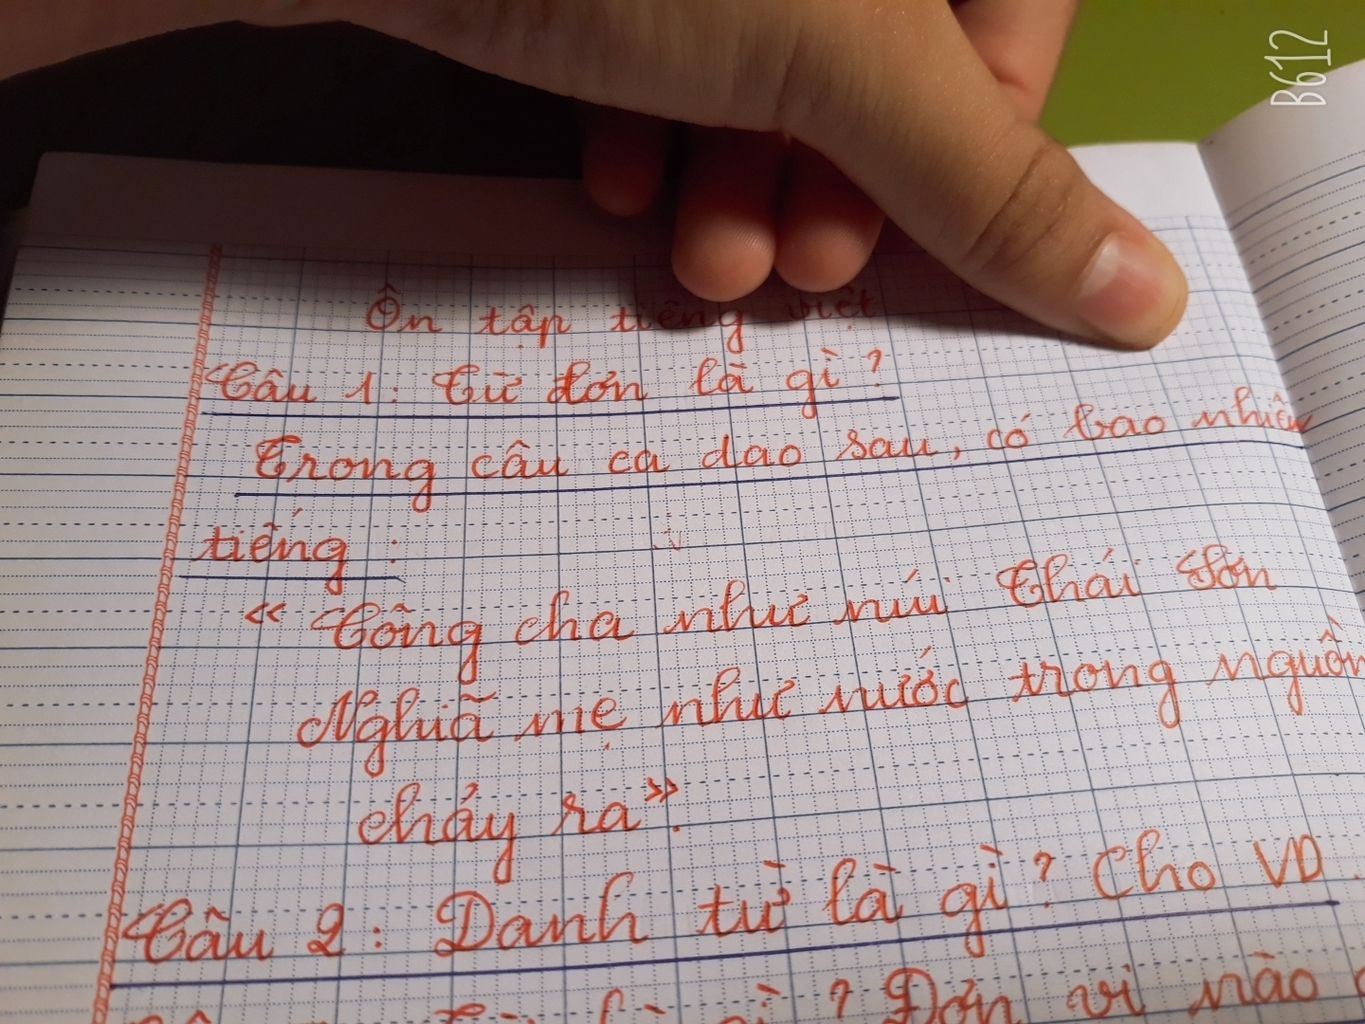 B612
Ôn tập tiếng việt
Câu 1: Từ đơn là gì?
Trong câu ca dao sau, có bao nhiêu
tiếng:
"Công cha như núi Thái Sơn
Nghĩa mẹ như nước trong nguồn
chảy ra".
Câu 2: Danh từ là gì? Cho VD
là gì? Đơn vị nào